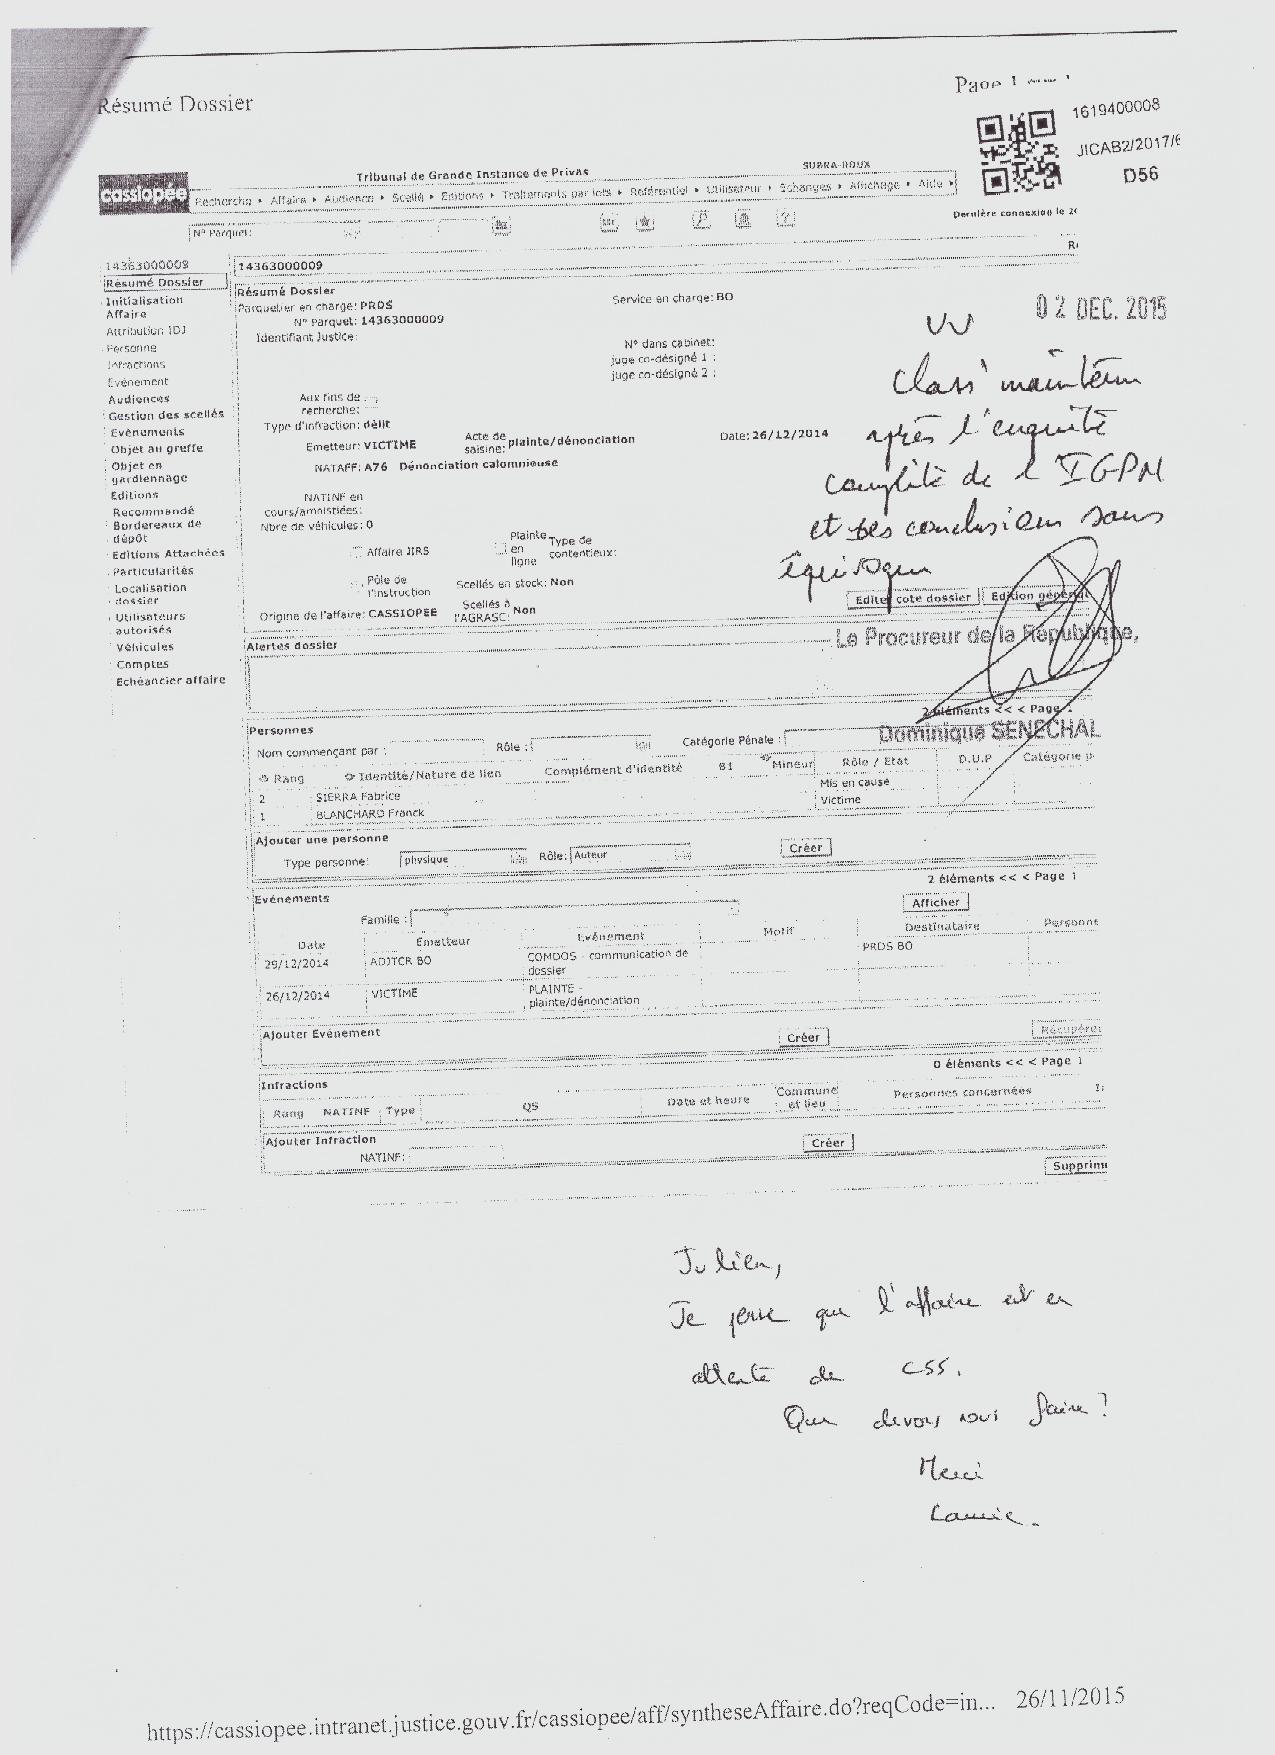 Résumé Dossier
1619400008
JICAB2/2017/6
D56
SUBRA-ROUX
cassiopée
Tribunal de Grande Instance de Privas
Recherche Affaire Audience Scellé Editions Traitements par lots Référentiel Utilisateur Echanges Affichage Aide
N° Parquet:
Dernière connexion le 2
14363000009
14363000009
Résumé Dossier
Initialisation
Affaire
Attribution IDJ
Personne
Infractions
Evénement
Audiences
Gestion des scellés
Evènements
Objet au greffe
Objet en
gardiennage
Editions
Recommandé
Bordereaux de
dépôt
Editions Attachées
Particularités
Localisation
dossier
Utilisateurs
autorisés
Véhicules
Comptes
Echéancier affaire
Résumé Dossier
Parquetier en charge: PRDS
Service en charge: BO
N° Parquet: 14363000009
Identifiant Justice:
N° dans cabinet:
juge co-désigné 1 :
juge co-désigné 2 :
02 DEC. 2015
Aux fins de
recherche:
Type d'infraction: délit
Emetteur: VICTIME
Acte de
saisine: plainte/dénonciation
Date: 26/12/2014
NATAFF: A76 Dénonciation calomnieuse
NATINF en
cours/amnistiées:
Nbre de véhicules: 0
Affaire JIRS
Plainte
en
ligne
Type de
contentieux:
Pôle de
l'instruction
Scellés en stock: Non
Origine de l'affaire: CASSIOPEE
Scellés à
l'AGRASC: Non
Class' maintenu
après l'enquête
complète de l'IGPN
et ses conclusions sans
équivoque
Editer cote dossier Edition général
Le Procureur de la République,
Dominique SENECHAL
Alertes dossier
2 éléments << < Page 1
Personnes
Nom commençant par :
Rôle :
Catégorie Pénale :
Rang Identité/Nature de lien Complément d'identité B1 Mineur Rôle / Etat D.U.P Catégorie p
2 SIERRA Fabrice Mis en cause
1 BLANCHARD Franck Victime
Ajouter une personne
Type personne: physique Rôle: Auteur Créer
2 éléments << < Page 1
Evénements
Famille :
Afficher
Date Emetteur Evénement Motif Destinataire Personne
29/12/2014 ADJTCR BO COMDOS - communication de
dossier
PRDS BO
26/12/2014 VICTIME PLAINTE -
plainte/dénonciation
Ajouter Evénement
Créer
Récupérer
0 éléments << < Page 1
Infractions
Rang NATINF Type QS Date et heure Commune
et lieu
Personnes concernées
Ajouter Infraction
NATINF:
Créer
Supprim
Julien,
Je pense que l'affaire est en
attente de CSS.
Que devons nous faire ?
Merci
https://cassiopee.intranet.justice.gouv.fr/cassiopee/aff/syntheseAffaire.do?reqCode=in... 26/11/2015